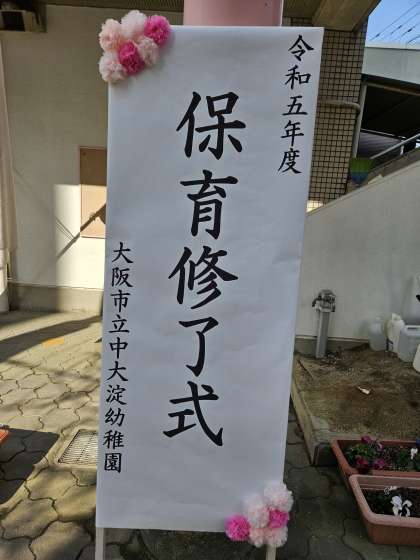 令和五年度
保育修了式
大阪市立中大淀幼稚園